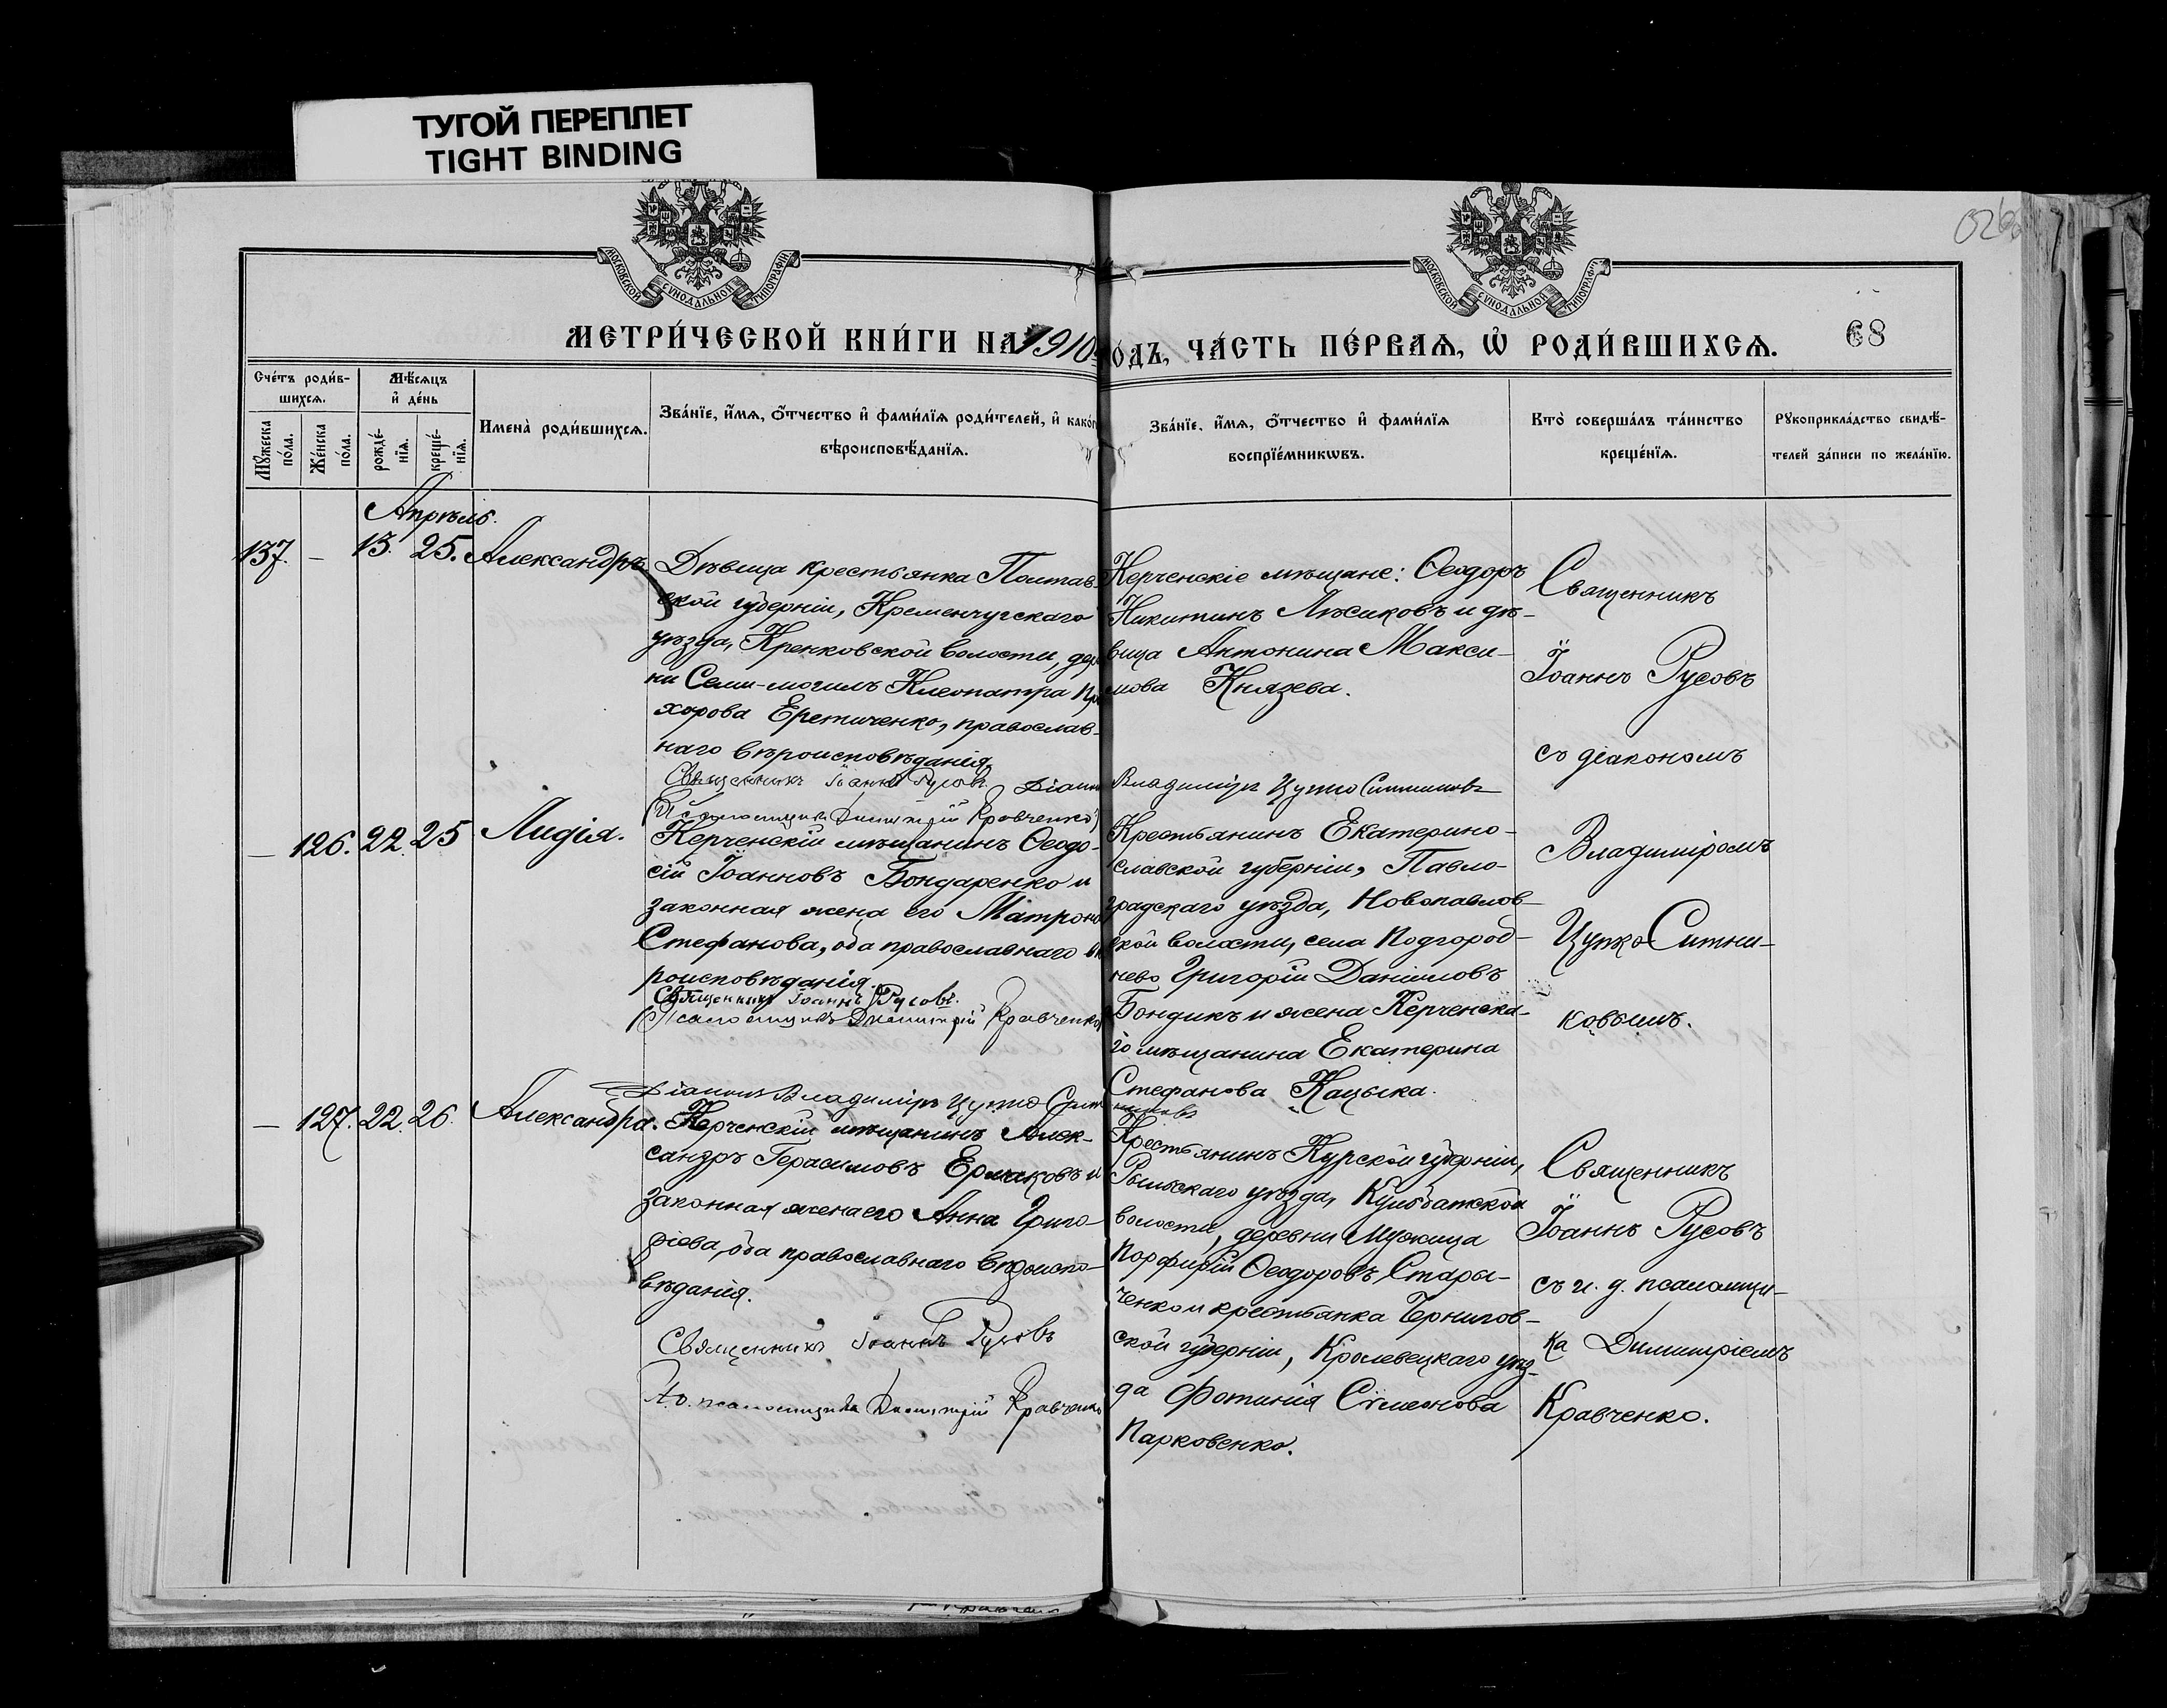 ТУГОЙ ПЕРЕПЛЕТ
TIGHT BINDING
МОСКОВСКОЙ СУНОДАЛЬНОЙ ТИПОГРАФІИ
МОСКОВСКОЙ СУНОДАЛЬНОЙ ТИПОГРАФІИ
МЕТРИ́ЧЕСКОЙ КНИ́ГИ НА 1910 ОДЪ, ЧА́СТЬ ПЕ́РВАѦ, Ѡ҆ РОДИ́ВШИХСѦ.
68
Сче́тъ роди́в-
шихсѧ.
Мѣ́сѧцъ
и҆ де́нь
Мꙋ́жеска
по́ла.
Же́нска
по́ла.
рожде́-
нїѧ.
креще́-
нїѧ.
Имена̀ роди́вшихсѧ.
Зва́нїе, и҆́мѧ, ѻ҆́тчество и҆ фами́лїѧ роди́телей, и҆ како́г
вѣроисповѣ́данїѧ.
Зва́нїе, и҆́мѧ, ѻ҆́тчество и҆ фами́лїѧ
воспрїе́мникѡвъ.
Кто̀ соверша́лъ та́инство
креще́нїѧ.
Рꙋкоприкла́дство свидѣ́-
телей за́писи по жела́нїю.
Апрѣль.
137. – 13. 25. Александръ
Дѣвица крестьянка Полтав-
ской губерніи, Кременчугскаго
уѣзда, Кренковской волости, дер
ни Семи-могилъ Клеопатра Пр
хорова Еретиченко, православ-
наго вѣроисповѣданія.
Священникъ Іоаннъ Русовъ. Діаконъ
Псаломщикъ Димитрій Кравченко
Керченскіе мѣщане: Ѳеодоръ
Никитинъ Лѣсиковъ и дѣ-
вица Антонина Макси-
мова Князева.
Владиміръ Цупко Ситниковъ
Священникъ
Іоаннъ Русовъ
съ діакономъ
Владиміромъ
Цупко Ситни-
ковымъ.
– 126. 22. 25 Лидія.
Керченскій мѣщанинъ Ѳеодо-
сій Іоанновъ Бондаренко и
законная жена его Матрона
Стефанова, оба православнаго вѣ
роисповѣданія.
Священникъ Іоаннъ Русовъ.
Псаломщикъ Димитрій Кравченко
Діаконъ Владиміръ Цупко Сит
никовъ
Крестьянинъ Екатерино-
славской губерніи, Павло-
градскаго уѣзда, Новопавлов-
ской волости, села Подгород-
нево Григорій Даніиловъ
Бондикъ и жена Керченска-
го мѣщанина Екатерина
Стефанова Кацыка.
– 127. 22. 26. Александра.
Керченскій мѣщанинъ Алек-
сандръ Герасимовъ Ермаковъ и
законная жена его Анна Григо-
ріева, оба православнаго вѣроиспо-
вѣданія.
Священникъ Іоаннъ Русовъ
И.д. псаломщика Димитрій Кравченко
Крестьянинъ Курской губерніи,
Рыльскаго уѣзда,
волости, деревни Мужица
Порфирій Ѳеодоровъ Стари-
ченко и крестьянка Чернигов-
ской губерніи, Кролевецкаго уѣз-
да Фотинія Сѵмеонова
Парковенко.
Священникъ
Іоаннъ Русовъ
съ и. д. псаломщи-
ка Димитріемъ
Кравченко.